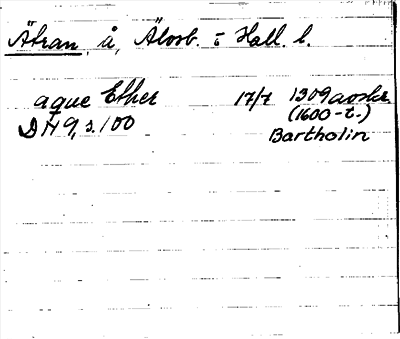 Ätran, å, Älvsb. o Hall. l.
aque Ether 17/7 1309 avskr.
(1600-t.)
DH 9, s. 100
Bartholin